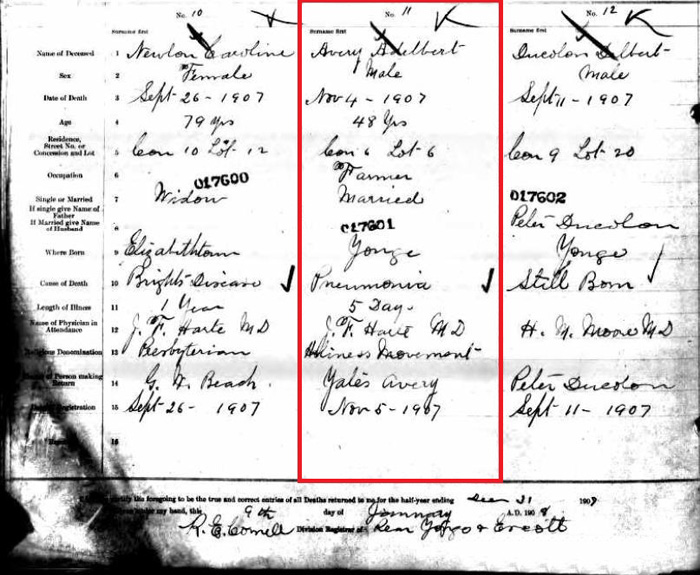 No. 10 No. 11 No. 12
Surname first Surname first Surname first
Name of Deceased 1 Newlon Caroline Avery Adelbert Ducolon Delbert
Sex 2 Female Male Male
Date of Death 3 Sept 26 - 1907 Nov 4 - 1907 Sept 11 - 1907
Age 4 79 Yrs 48 Yrs
Residence, Street No. or Concession and Lot 5 Con 10 Lot 12 Con 6 Lot 6 Con 9 Lot 20
Occupation 6 Farmer
017600
Single or Married 7 Widow Married
017602
If single give Name of Father
If Married give Name of Husband 8 017601 Peter Ducolon
Where Born 9 Elizabethtown Yonge Yonge
Cause of Death 10 Brights Disease Pneumonia Still Born
Length of Illness 11 1 Year 5 Days
Name of Physician in Attendance 12 J. F. Harte MD J. F. Harte MD H. N. Moore MD
Religious Denomination 13 Presbyterian Holiness Movement
Name of Person making Return 14 G. W. Beach Yates Avery Peter Ducolon
15 Sept 26 - 1907 Nov 5 - 1907 Sept 11 - 1907
16
certify the foregoing to be the true and correct entries of all Deaths returned to me for the half-year ending Dec 31 190
under my hand, this 9th day of January A.D. 1908
R. E. Cornell Division Registrar of Rear Yonge & Escott